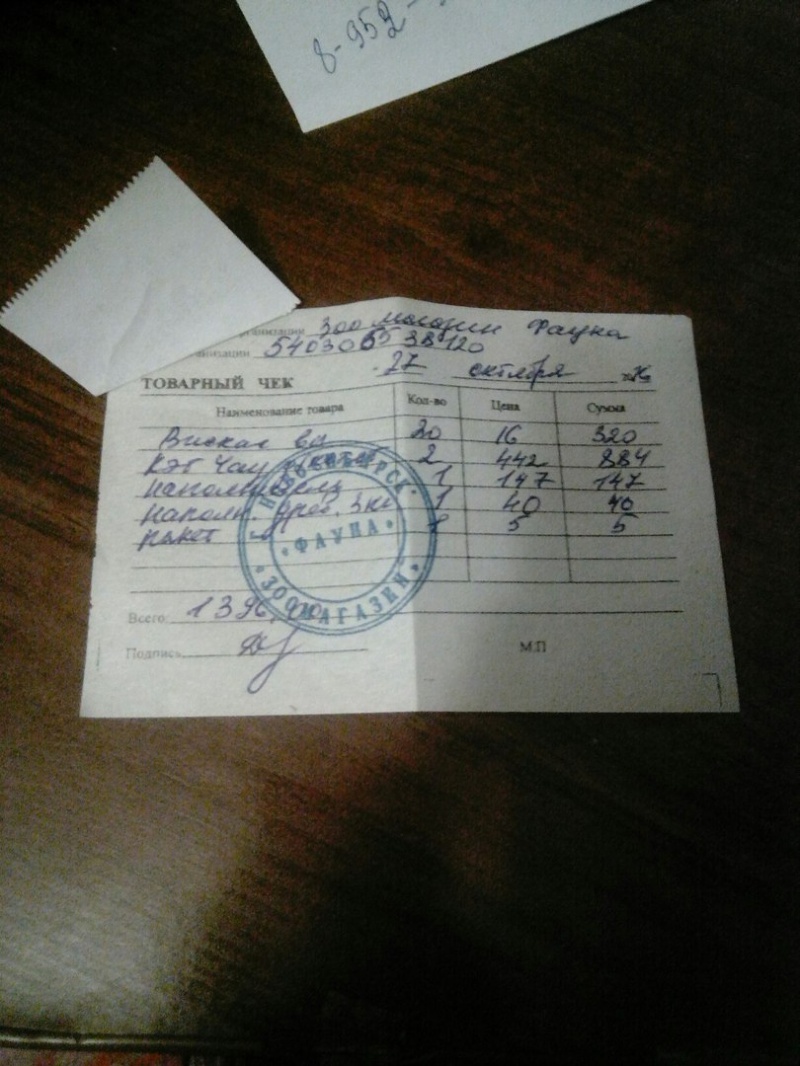 8-952-
рганизации Зоо магазин Фауна
низации 540306538120
27 октября
ТОВАРНЫЙ ЧЕК
Наименование товара Кол-во Цена Сумма
Вискас 20 16 320
Кэт Чау 2 442 884
наполнитель 1 147 147
наполн. древ. 3кг 1 40 40
пакет 1 5 5
НОВОСИБИРСК
ФАУНА
ЗООМАГАЗИН
Всего 1396,00
Подпись
М.П